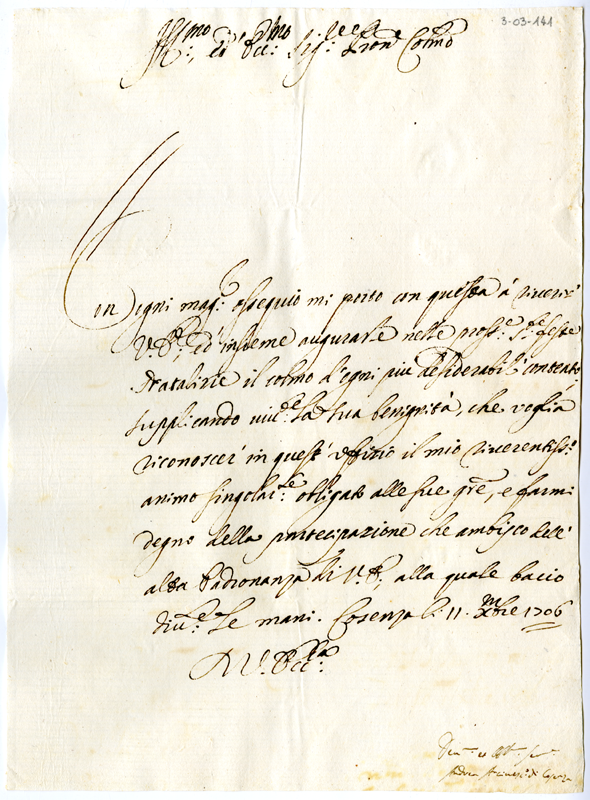 3-03-141
Ill.mo, ed Ecc.mo Sig.re Pron.e Colmo
Con ogni mag.r ossequio mi porto con questa à riverir
V.E., ed insieme augurarle nelle pross.e S.te feste
Natalizie il colmo d'ogni più desiderabil contento,
supplicando la sua benignità, che voglia
riconoscer in quest'uffizio il mio riverentiss.o
animo singolar.te obligato alle sue gre, e farmi
degno della partecipazione che ambisco dell'
alta Padronanza di V.E., alla quale bacio
div.te le mani. Cosenza li 11. Xmbre 1706
D V. Ecc.za